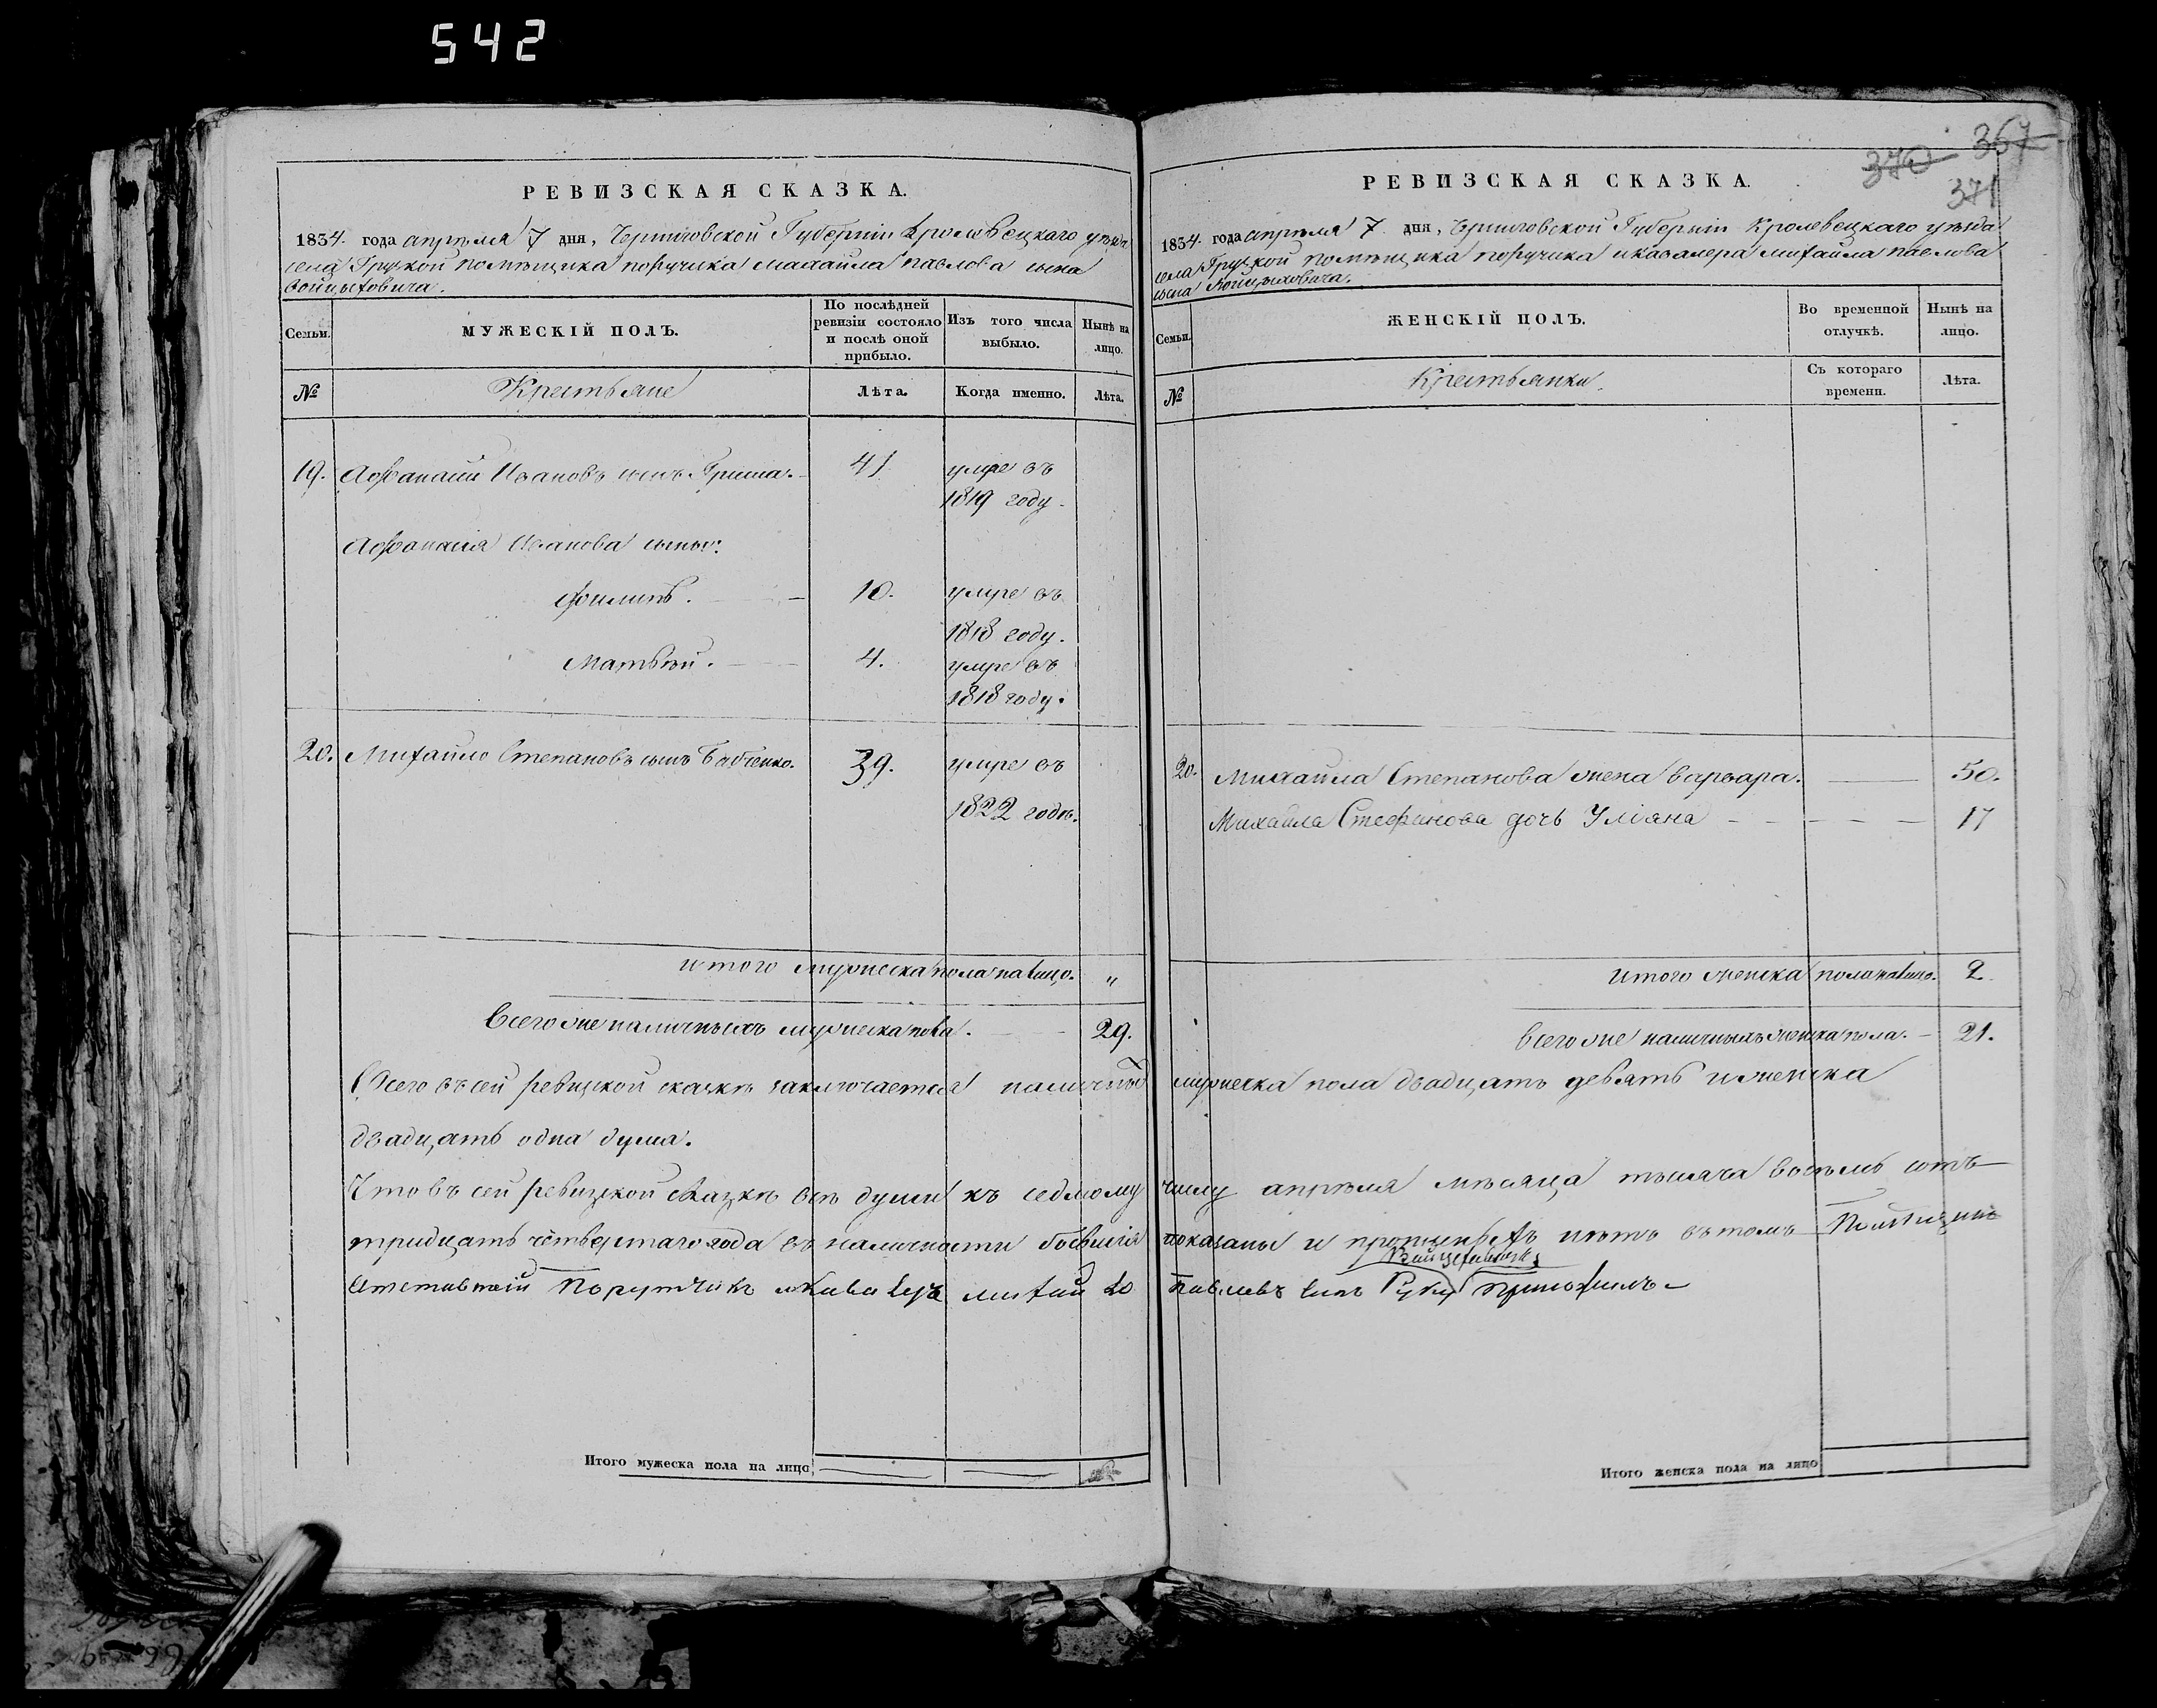 542
РЕВИЗСКАЯ СКАЗКА.
1834. года апрѣля 7 дня, Черниговской Губерніи Кролевецкаго уѣзда
села Грузкой помѣщика поручика Михайла Павлова сына
Войцыховича.
Семьи.
МУЖЕСКІЙ ПОЛЪ.
По послѣдней ревизіи состояло и послѣ оной прибыло.
Изъ того числа выбыло.
Нынѣ на лицо.
№
Крестьяне
Лѣта.
Когда именно.
Лѣта.
19. Афанасій Ивановъ сынъ Гриша. 41. умре въ
1819 году.
Афанасія Иванова сыны:
Филипъ. 10. умре въ
1818 году.
Матвѣй. 4. умре въ
1818 году.
20. Михайло Степановъ сынъ Бабченко. 39. умре въ
1822 годѣ.
итого мужеска пола налицо. „
Всего же наличныхъ мужеска пола. 29.
367
370
371
РЕВИЗСКАЯ СКАЗКА.
1834. года апрѣля 7 дня, Черниговской Губерніи Кролевецкаго уѣзда
села Грузкой помѣщика поручика и кавалера Михайла Павлова
сына Войцыховича.
Семьи.
ЖЕНСКІЙ ПОЛЪ.
Во временной отлучкѣ.
Нынѣ на лицо.
№
Крестьянки.
Съ котораго времени.
Лѣта.
20. Михайла Степанова жена Варвара. 50.
Михайла Стефанова дочь Уліяна 17
Итого женска пола налицо. 2.
Всего же наличныхъ женска пола. 21.
Всего въ сей ревизской сказкѣ заключается наличныхъ мужеска пола двадцать девять и женска
двадцать одна душа.
Что въ сей ревизской сказкѣ всѣ души къ седмому числу апрѣля мѣсяца тысяча восемь сотъ
тридцать четвертаго года въ наличности бывшія показаны и прописныхъ нѣтъ въ томъ Помѣщик
Отставной Порутчикъ и Кавалеръ Михайло Павловъ сынъ Войцеховичъ Руку приложилъ
Итого мужеска пола на лицо
Итого женска пола на лицо